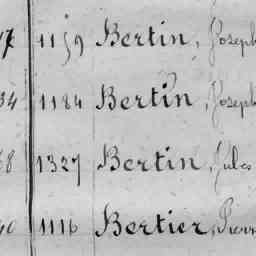 17 1159 Bertin, Joseph
34 1184 Bertin, Joseph
68 1327 Bertin, Jules
40 1116 Bertier,